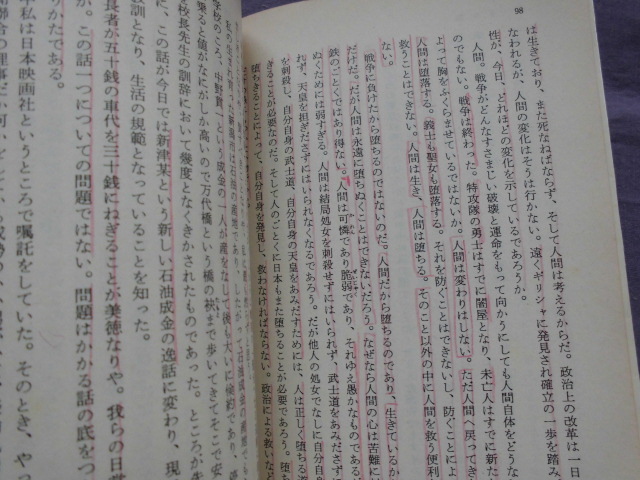 98
は生きており、また死なねばならず、そして人間は考えるからだ。政治上の改革は一日
なわれるが、人間の変化はそうは行かない。遠くギリシャに発見され確立の一歩を踏み
性が、今日、どれほどの変化を示しているであろうか。
人間。戦争がどんなすさまじい破壊と運命をもって向かうにしても人間自体をどうな
のでもない。戦争は終わった。特攻隊の勇士はすでに闇屋となり、未亡人はすでに新た
よって胸をふくらませているではないか。人間は変わりはしない。ただ人間へ戻ってき
人間は堕落する。義士も聖女も堕落する。それを防ぐことはできないし、防ぐことによ
救うことはできない。人間は生き、人間は堕ちる。そのこと以外の中に人間を救う便利
ない。
戦争に負けたから堕ちるのではないのだ。人間だから堕ちるのであり、生きているか
だけだ。だが人間は永遠に堕ちぬくことはできないだろう。なぜなら人間の心は苦難に
鉄のごとくではあり得ない。人間は可憐であり脆弱であり、それゆえ愚かなものであるが
ぬくためには弱すぎる。人間は結局処女を刺殺せずにはいられず、武士道をあみださずに
ず、天皇を担ぎださずにはいられなくなるであろう。だが他人の処女でなしに自分自身
を刺殺し、自分自身の武士道、自分自身の天皇をあみだすためには、人は正しく堕ちる道
きることが必要なのだ。そして人のごとくに日本もまた堕ちることが必要であろう。堕ち
堕ちきることによって、自分自身を発見し、救わなければならない。政治による救いなど
私の生まれ育った新潟市は石油の産地であり、したがって石油成金の産地でも
学校のころ、中野貫一という成金の一人が産をなして後も大いに倹約であり、停
乗ると値がなにがしか高いので万代橋という橋の袂まで歩いてきてそこで安
を校長先生の訓辞において幾度となくきかされたものであった。ところが先
に、この話が今日では新津某という新しい石油成金の逸話に変わり、現
教訓となり、生活の規範となっていることを知った。
長者が五十銭の車代を三十銭にねぎることが美徳なりや。我らの日常
か。この話一つについての問題ではない。問題はかかる話の底をつ
りかたである。
年私は日本映画社というところで嘱託をしていた。そのとき、やっ